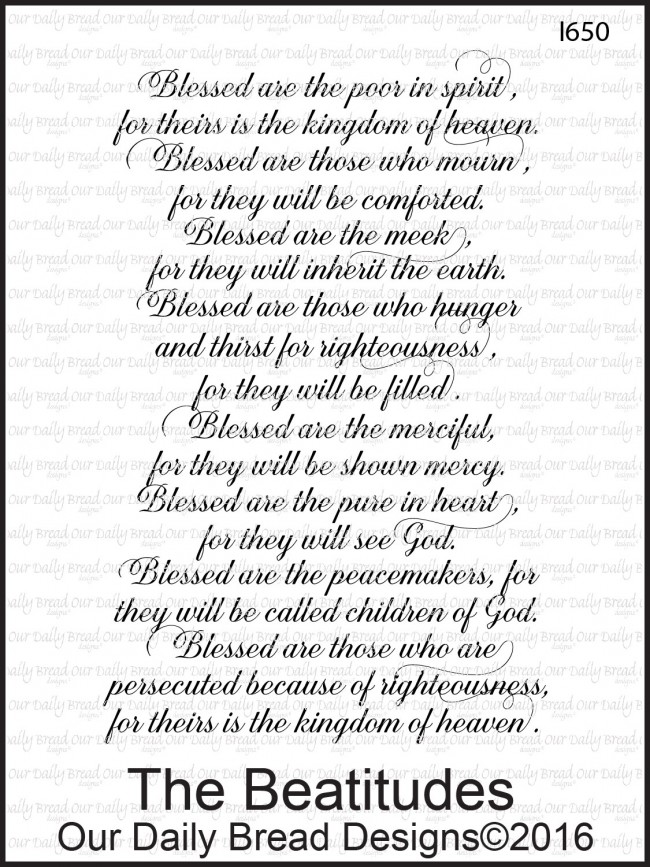 I650
Blessed are the poor in spirit,
for theirs is the kingdom of heaven.
Blessed are those who mourn,
for they will be comforted.
Blessed are the meek,
for they will inherit the earth.
Blessed are those who hunger
and thirst for righteousness,
for they will be filled.
Blessed are the merciful,
for they will be shown mercy.
Blessed are the pure in heart,
for they will see God.
Blessed are the peacemakers, for
they will be called children of God.
Blessed are those who are
persecuted because of righteousness,
for theirs is the kingdom of heaven.
The Beatitudes
Our Daily Bread Designs©2016